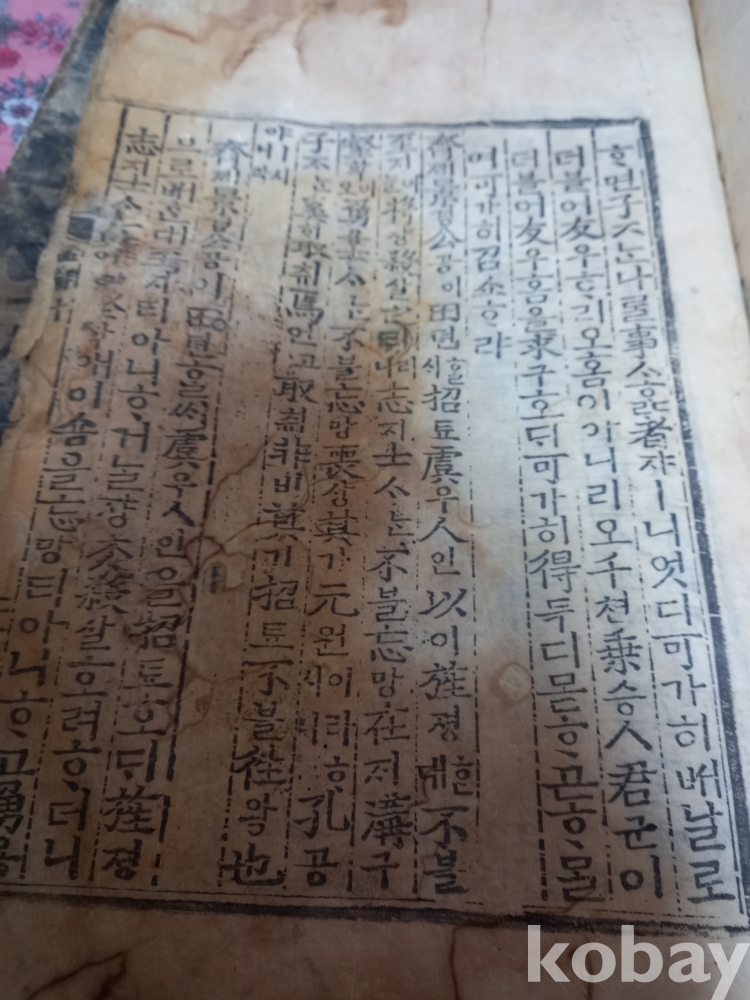 ᄒᆞ면子ᄌᆞᄂᆞᆫ나ᄅᆞᆯ事ᄉᆞᄒᆞᆯ者쟈ㅣ니엇디可가히ᄡᅥ날로
더블어友우ᄒᆞ리오홈이아니리오千쳔乘승人君군이
더블어友우홈을求구호ᄃᆡ可가히得득디몯ᄒᆞ곤ᄒᆞᄆᆞᆯ
며可가히召쇼ᄒᆞ랴
齊졔景경公공이田뎐ᄒᆞᆯ시招툐虞우人인以이旌졍ᄒᆞᆫ대不블
至지어ᄂᆞᆯ將쟝殺살之지러니志지士ᄉᆞᄂᆞᆫ不블忘망在ᄌᆡ溝구
壑학이오勇용士ᄉᆞᄂᆞᆫ不블忘망喪상其기元원이라ᄒᆞ시니孔공
子ᄌᆞᄂᆞᆫ奚ᄒᆡ取ᄎᆔ焉언고取ᄎᆔ非비其기招툐不블往왕也
야ㅣ시니
齊졔景경公공이田뎐ᄒᆞᆯᄉᆡ虞우人인을招툐호ᄃᆡ旌졍
으로ᄡᅥᄒᆞᆫ대至지티아니ᄒᆞ거ᄂᆞᆯ쟝ᄎᆞᆺ殺살호려ᄒᆞ더니
志지士ᄉᆞᄂᆞᆫ애이숌을忘망티아니ᄒᆞ고勇용
kobay